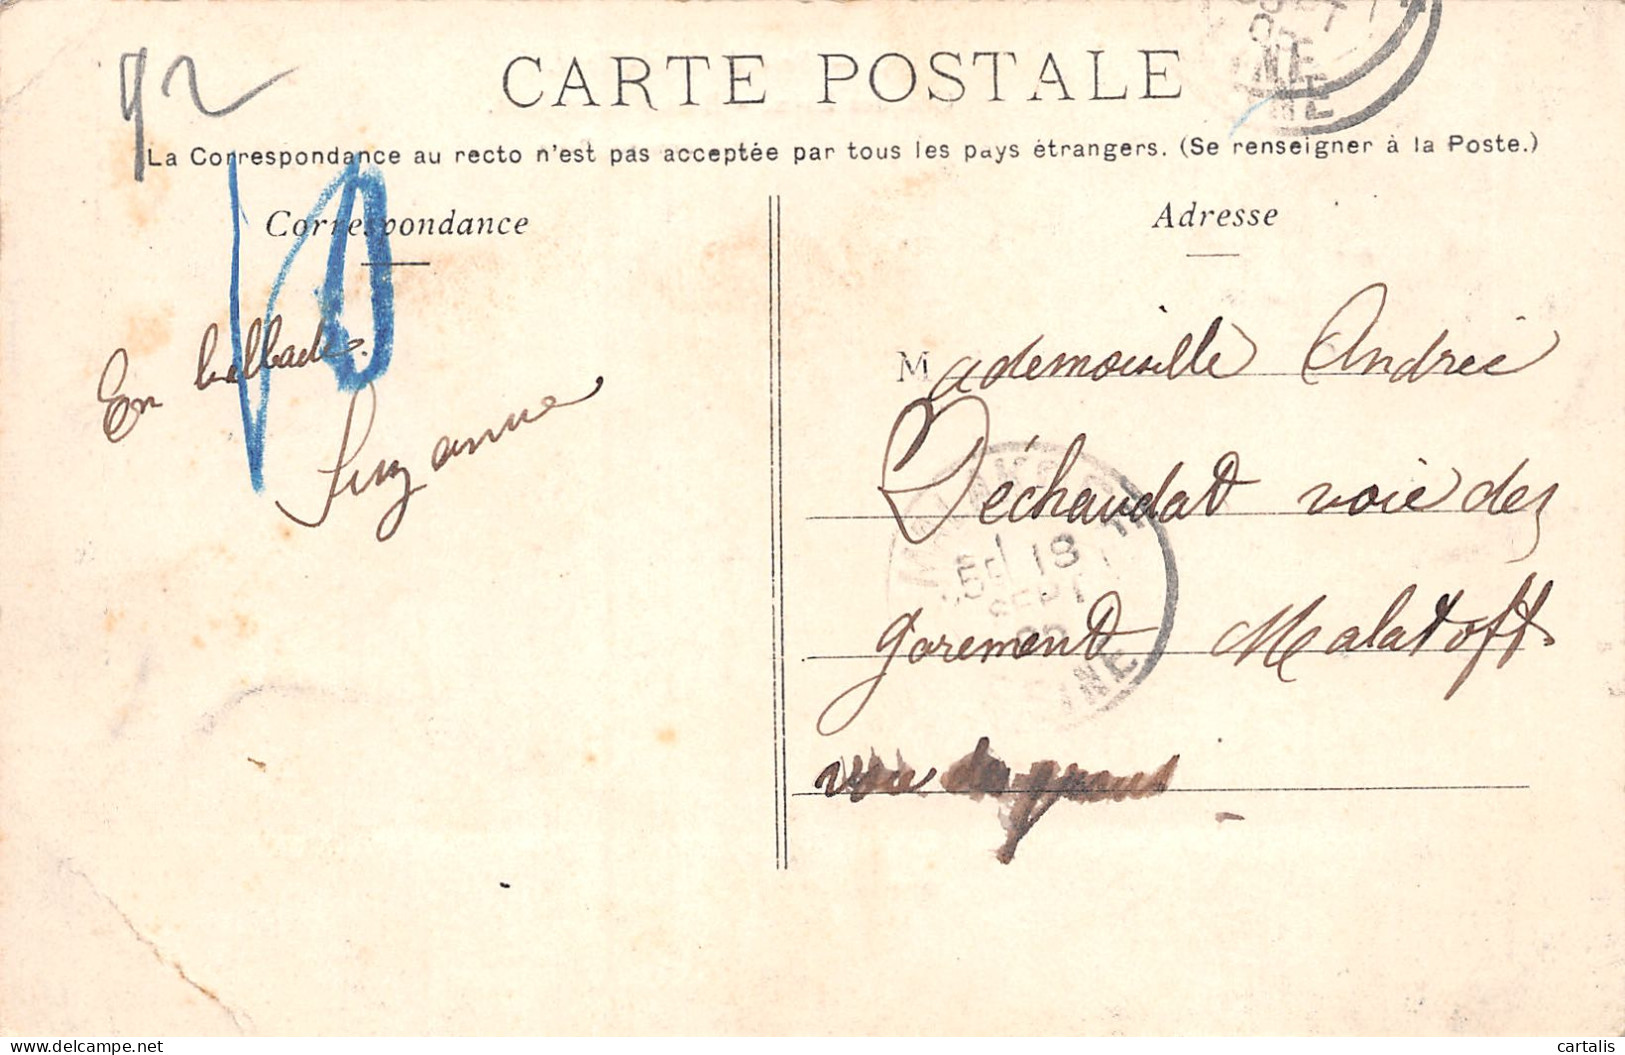 92
CARTE POSTALE
La Correspondance au recto n'est pas acceptée par tous les pays étrangers. (Se renseigner à la Poste.)
Correspondance
10
En ballade.
Suzanne
Adresse
Mademoiselle Andrée
Déchaudat voie des
garement Malatoff
18
SEPT
INE
cartalis
delcampe.net